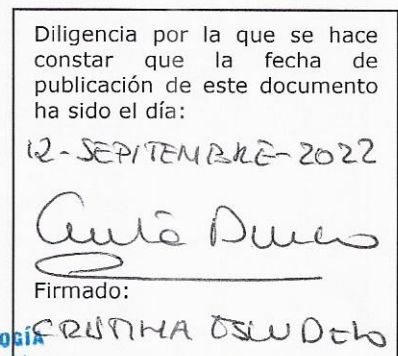 Diligencia por la que se hace
constar que la fecha de
publicación de este documento
ha sido el día:
12-SEPITEMBRE-2022
Firmado:
OGÍA CRISTINA